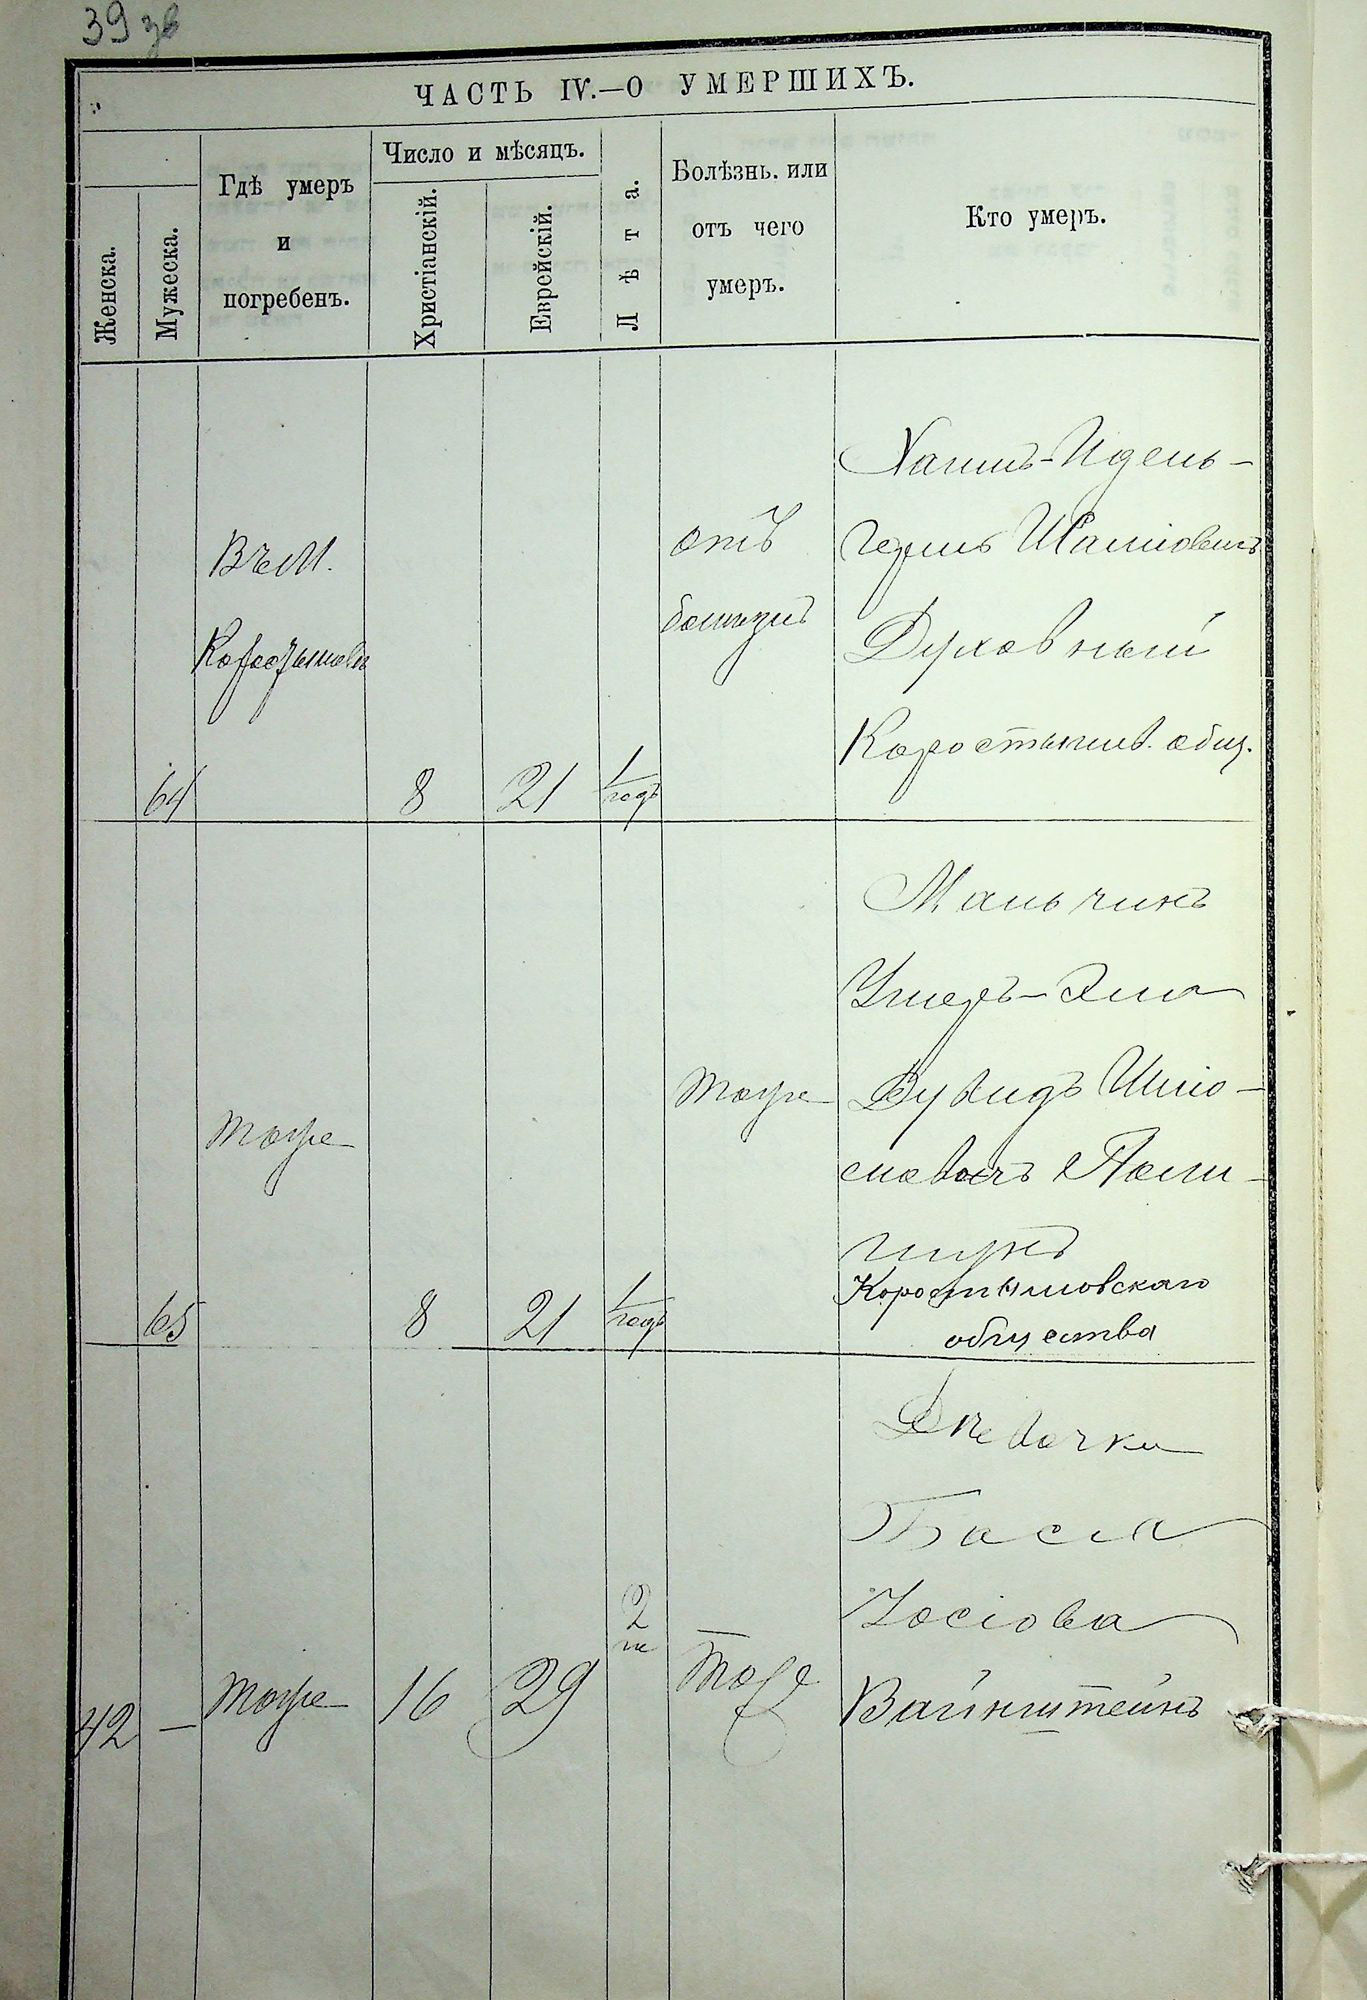 39 зв
ЧАСТЬ IV.—О УМЕРШИХЪ.
Женска.
Мужеска.
Гдѣ умеръ
и
погребенъ.
Число и мѣсяцъ.
Христіанскій.
Еврейскій.
Лѣта.
Болѣзнь. или
отъ чего
умеръ.
Кто умеръ.
64
Въ М.
Коростышевѣ
8
21
1
годъ
отъ
болѣзни
Духовный
Коростышев. общ.
65
тоже
8
21
1
годъ
тоже
Мальчикъ
Умеръ-
Дувидъ Шміо-
Коростышовскаго
общества
42
—
тоже
16
29
2
м
тоже
Дѣвочка
Бася
Іосіова
Вайнштейнъ